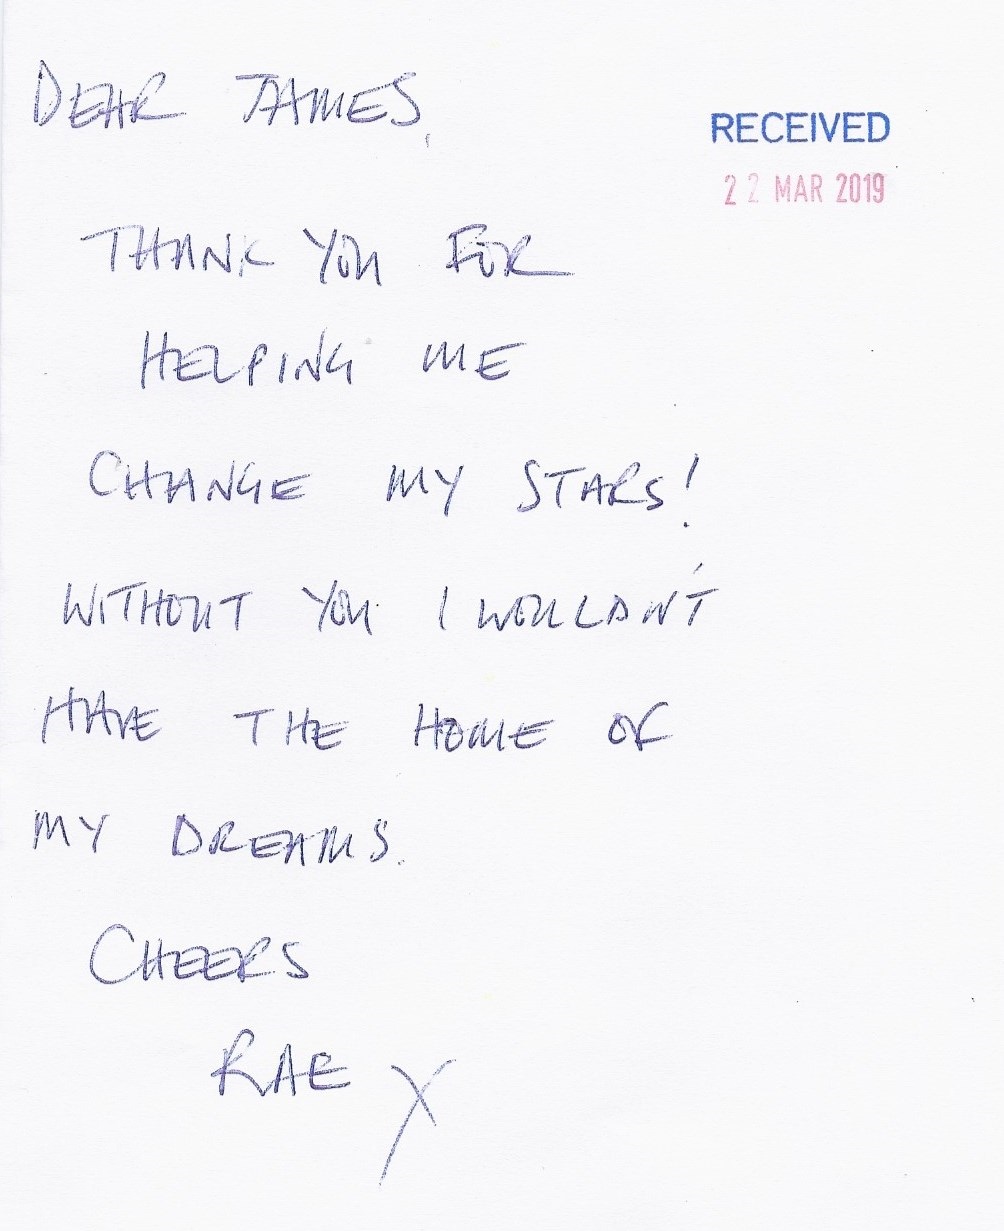 DEAR JAMES,
RECEIVED
22 MAR 2019
THANK YOU FOR
HELPING ME
CHANGE MY STARS!
WITHOUT YOU I WOULDN'T
HAVE THE HOME OF
MY DREAMS.
CHEERS
RAE X